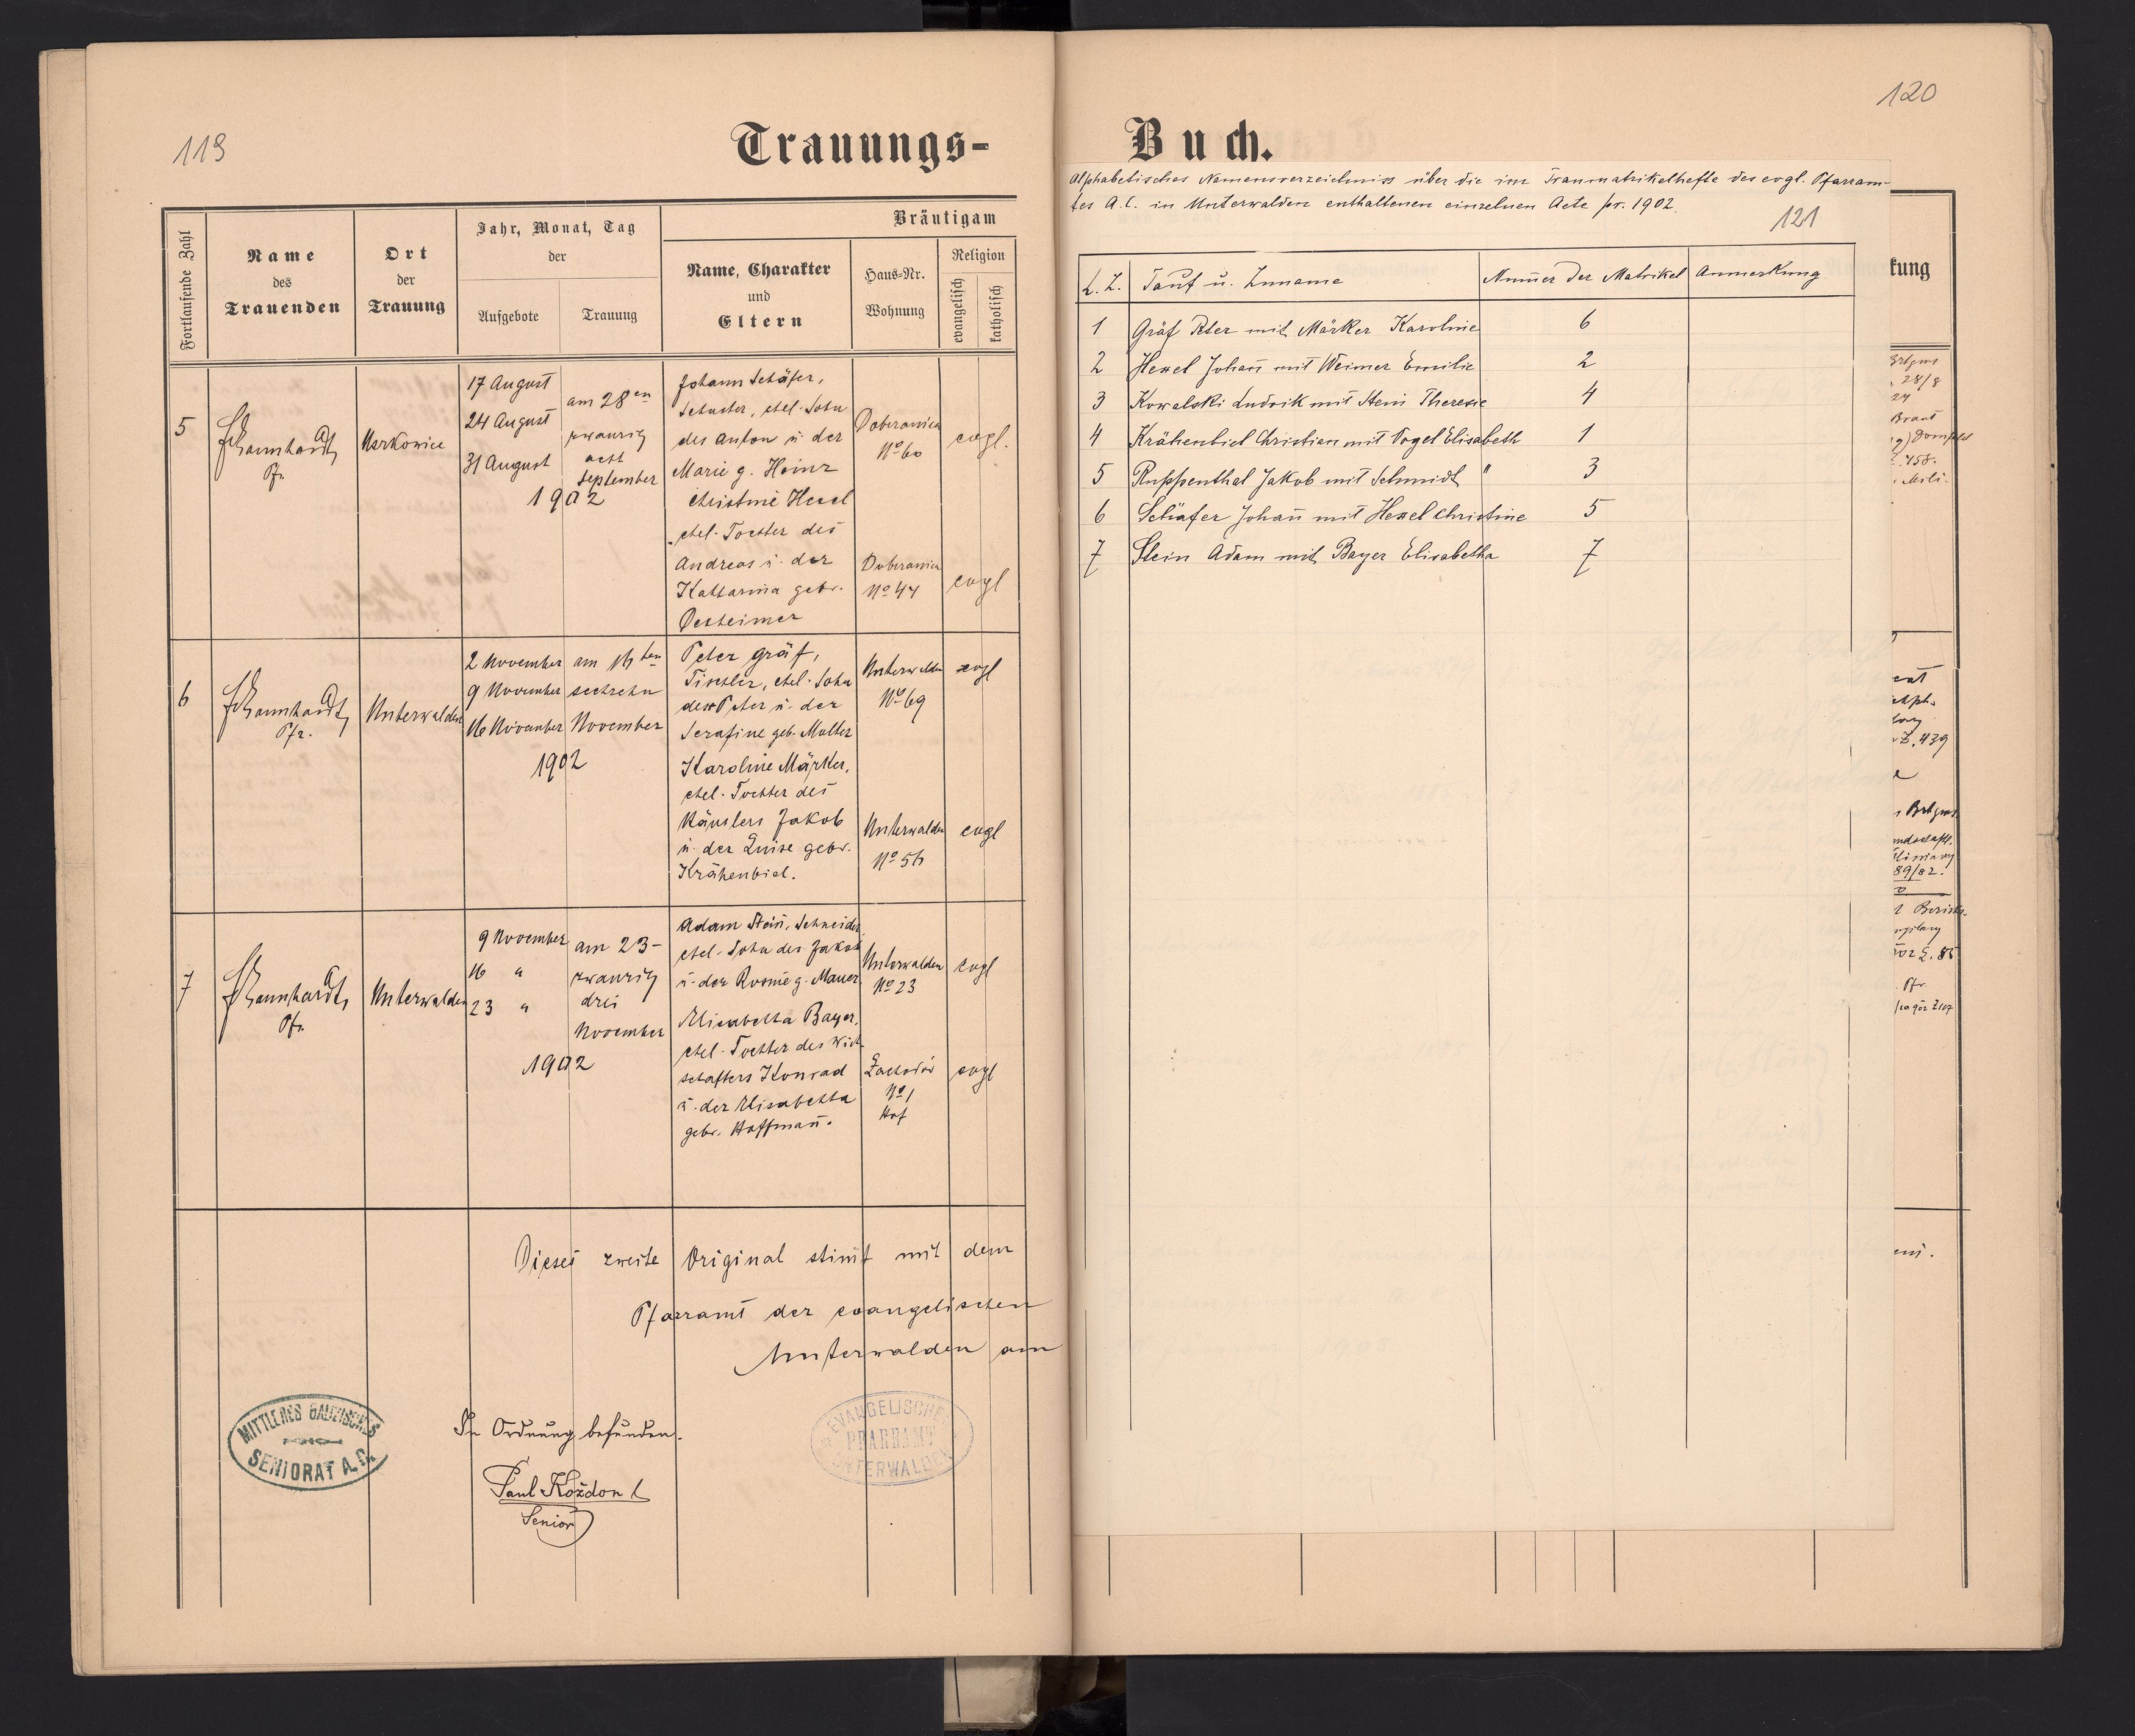 119
Trauungs-
Fortlaufende Zahl
Name
des
Trauenden
Ort
der
Trauung
Jahr, Monat, Tag
der
Aufgebote
Trauung
Bräutigam
Name, Charakter
und
Eltern
Haus-Nr.
Wohnung
Religion
evangelisch
katholisch
5
Pfr.
17 August
24 August
31 August
am 28en
zwanzig
acht
September
1902
Johann Schäfer,
Schuster, ehel. Sohn
des Anton u. der
Marie g. Heinz
Christine Hexel
ehel. Tochter des
Andreas u. der
Katharina gebr.
Desheimer
Doberanica
No 60
evgl.
Doberanica
No 44
evgl
6
Pfr.
Unterwalden
2 November
9 November
16 November
am 16ten
sechzehn
November
1902
Peter Gräf,
Tischler, ehel. Sohn
des Peter u. der
Serafine geb. Molter
Karoline Märker,
ehel. Tochter des
Häuslers Jakob
u. der Luise gebr.
Krähenbiel.
Unterwalden
No 69
evgl
Unterwalden
No 56
evgl
7
Pfr.
Unterwalden
9 November
16 "
23 "
am 23-
zwanzig
drei
November
1902
Adam Stein, Schneider,
ehel. Sohn des Jakob
u. der Rosine g. Mauer.
Elisabetha Bayer,
ehel. Tochter des Wirt-
schafters Konrad
u. der Elisabetha
gebr. Hoffmañ.
Unterwalden
No 23
evgl
No 1
Hof
evgl
Dieses zweite Original stim̄t mit dem
Pfarramt der evangelischen
Unterwalden am
MITTLERES GALIZISCHES
SENIORAT A.C.
In Ordnung befunden.
Paul Kożdoń
Senior
EVANGELISCHES
PFARRAMT
UNTERWALDEN
120
Buch.
Alphabetisches Namensverzeichniss über die im Traumatrikelhefte des evgl. Pfarram-
tes A.C. in Unterwalden enthaltenen einzelnen Acte pr. 1902.
121
L.Z. Tauf u. Zuname Num̄er der Matrikel Anmerkung
1 Gräf Peter mit Märker Karoline 6
2 Hexel Johañ mit Weimer Emilie 2
3 Kowalski Ludwik mit Stein Therese 4
4 Krähenbiel Christian mit Vogel Elisabeth 1
5 Ruppenthal Jakob mit Schmidt " 3
6 Schäfer Johañ mit Hexel Christine 5
7 Stein Adam mit Bayer Elisabetha 7
kung
28/8
Braut
458.
Z. 439
89/82.
Pfr.